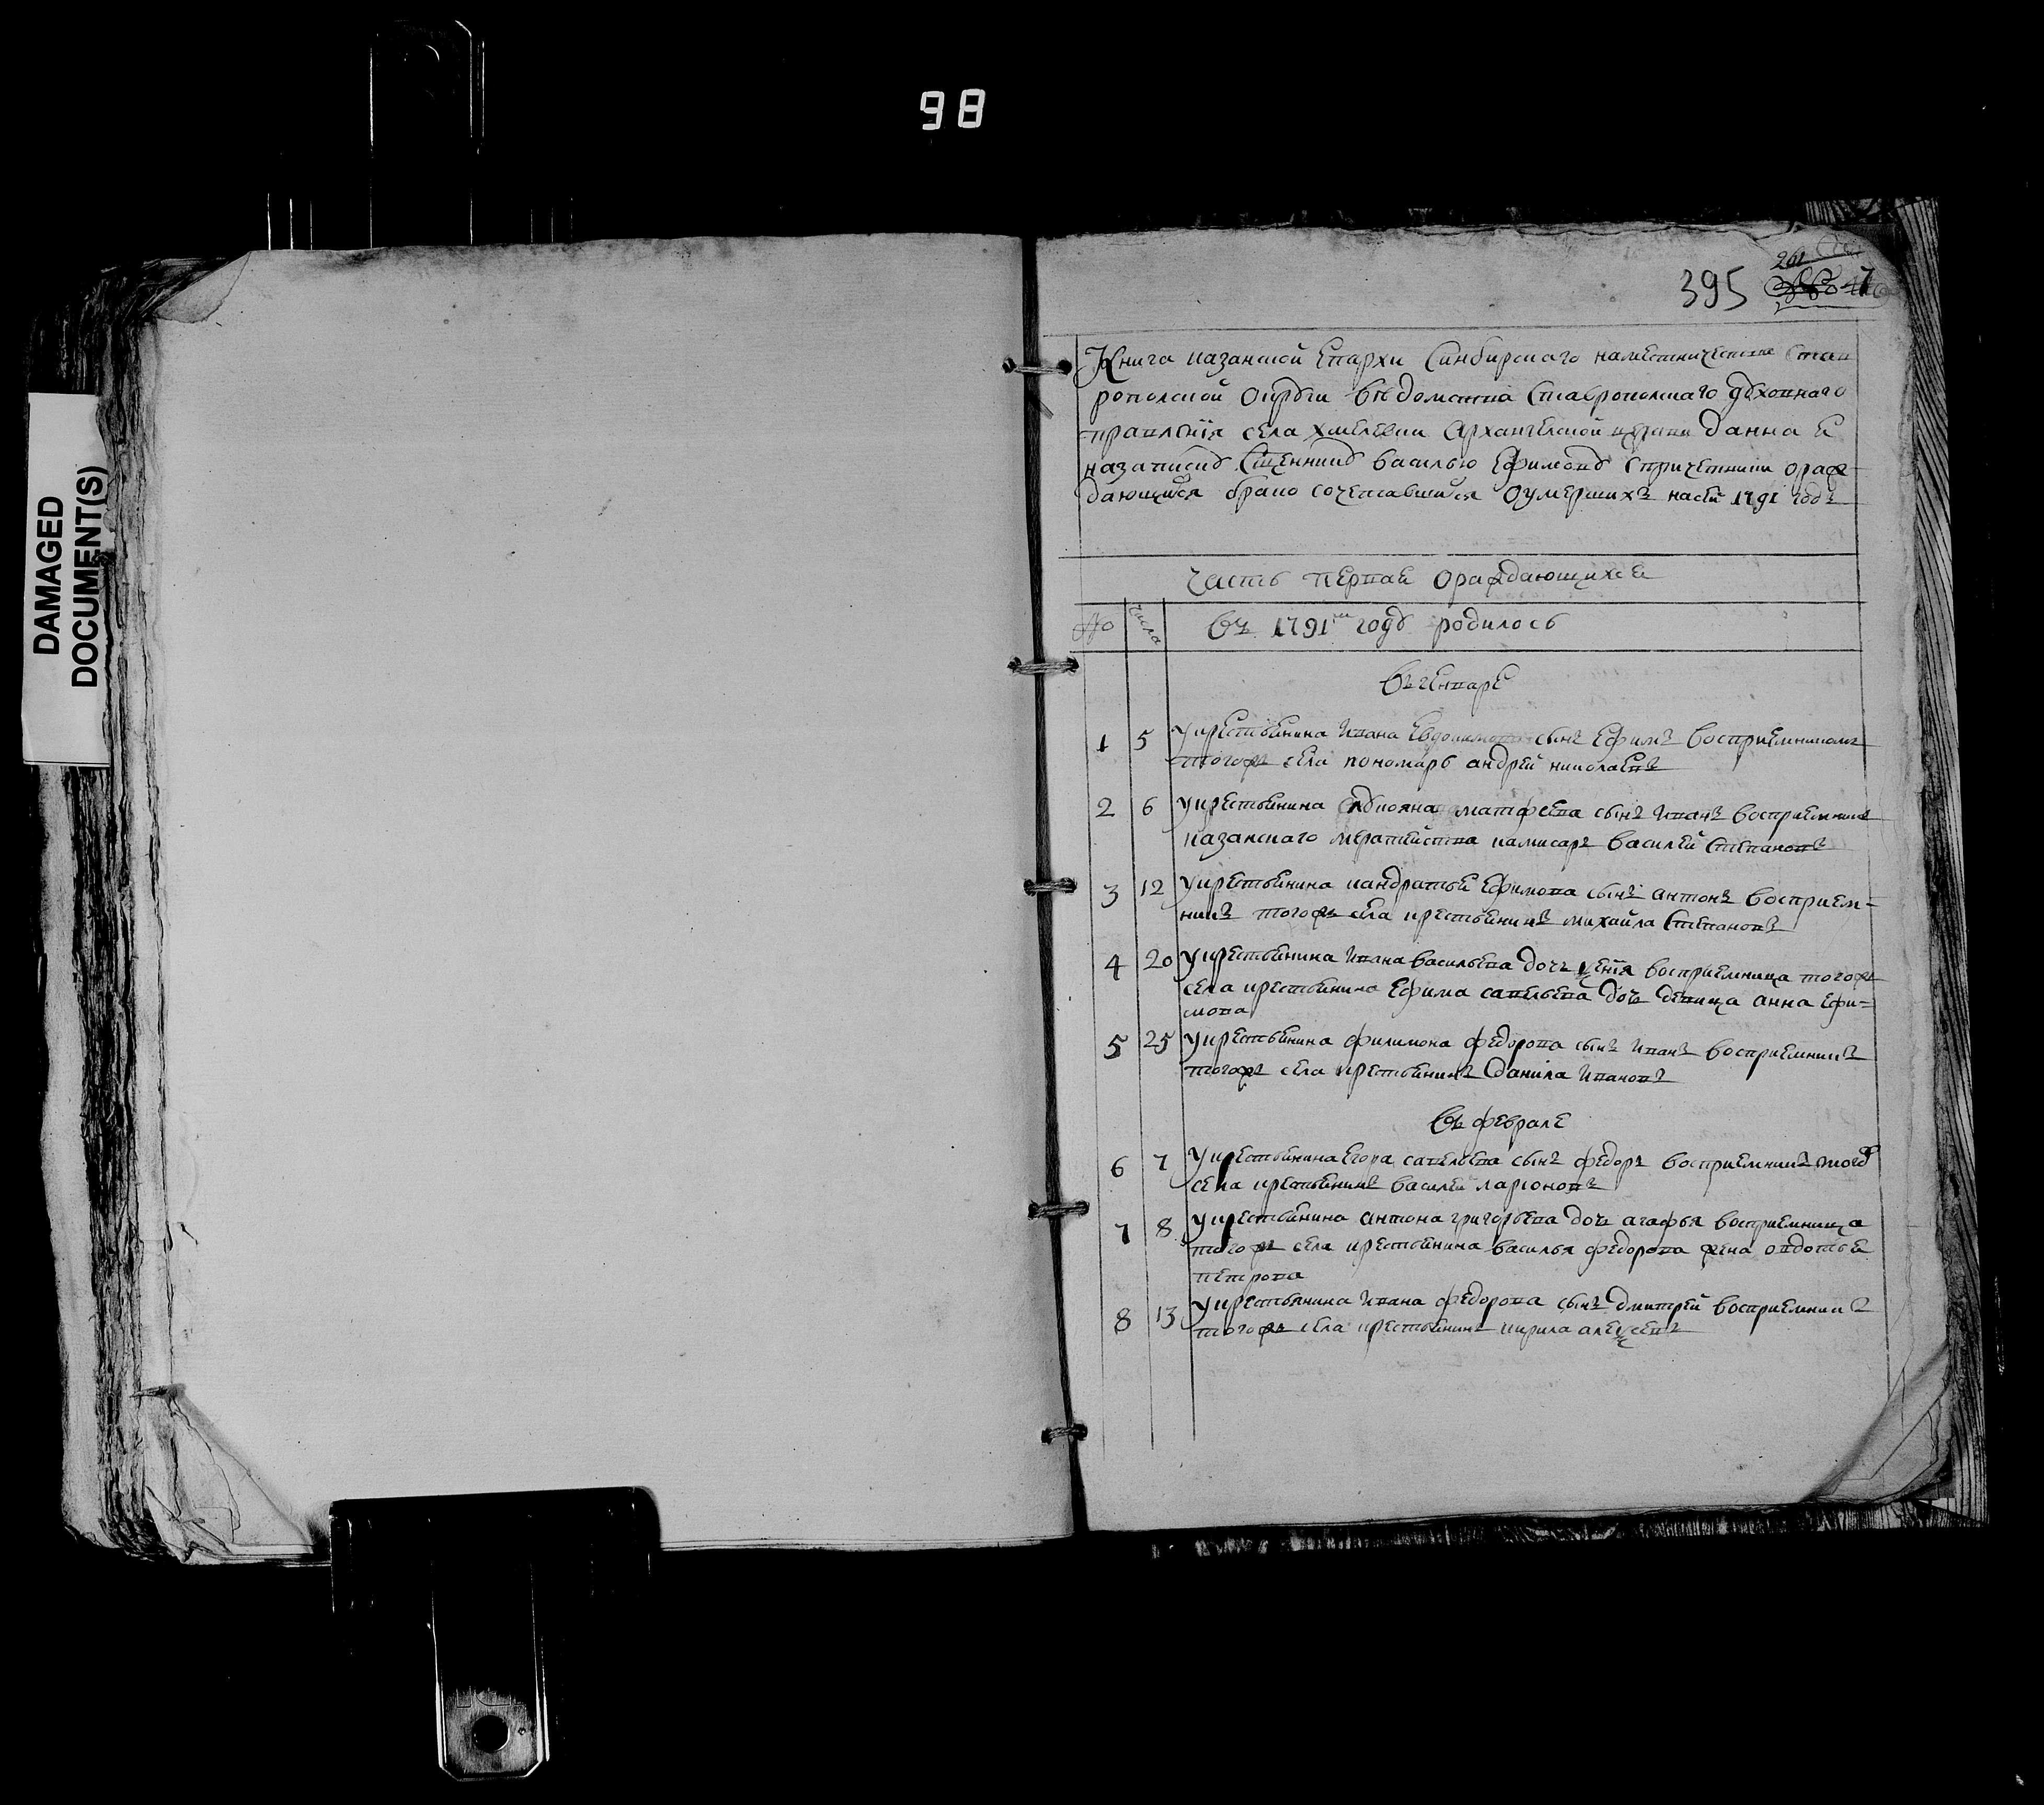 98
DAMAGED
DOCUMENT(S)
261
395
Книга казанской Епархи Синбирскаго наместничества Став
ропольской округи ведомства Ставропольскаго духовнаго
правления села Хмелевки Архангельской церкви данна я
на записку Сщеннику Василью Ефимову спричетники о раж-
дающихся брако сочетавшихся о умерших на сей 1791 годъ
Часть первая о раждающихся
№ числа Въ 1791м году родилось
Въ генваре
1 5 У крестьянина Ивана Евдокимова сынъ Ефимъ восприемникомъ
тогожъ села пономарь андрей николаевъ
2 6 У крестьянина матфеева сынъ Иванъ восприемникъ
казанскаго Василей Степановъ
3 12 У крестьянина кандратья Ефимова сынъ антонъ восприем-
никъ тогожъ села крестьянинъ михайла Степановъ
4 20 У крестьянина Ивана Васильева дочь восприемница тогожъ
села крестьянина Ефима савельева дочь девица анна Ефи-
мова
5 25 У крестьянина филимона федорова сынъ Иванъ восприемникъ
тогожъ села крестьянинъ данила Ивановъ
Въ феврале
6 7 У крестьянина Егора савельева сынъ федоръ восприемникъ тогожъ
села крестьянинъ василей ларионовъ
7 8 У крестьянина антона григорьева дочь агафья восприемница
тогожъ села крестьянина василья федорова жена овдотья
петрова
8 13 У крестьянина Ивана федорова сынъ дмитрей восприемникъ
тогожъ села крестьянинъ кирила алексеевъ